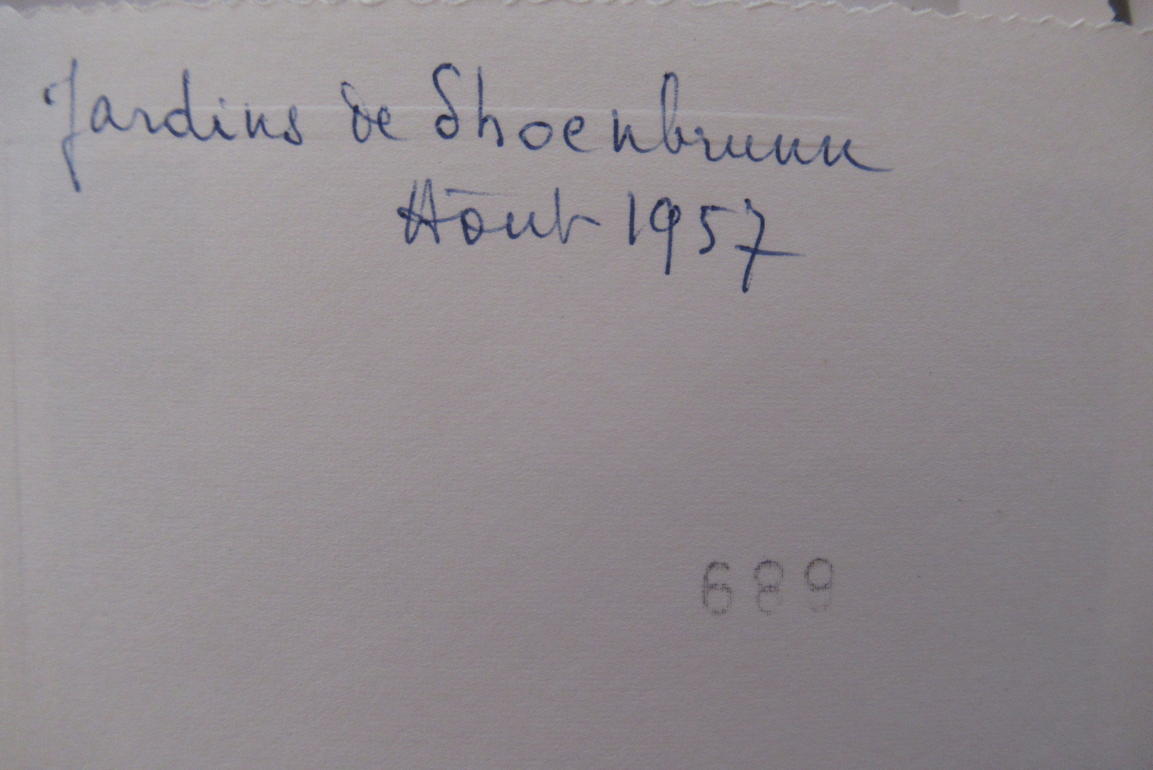 Jardins de Shoenbrunn
Aôut 1957
689